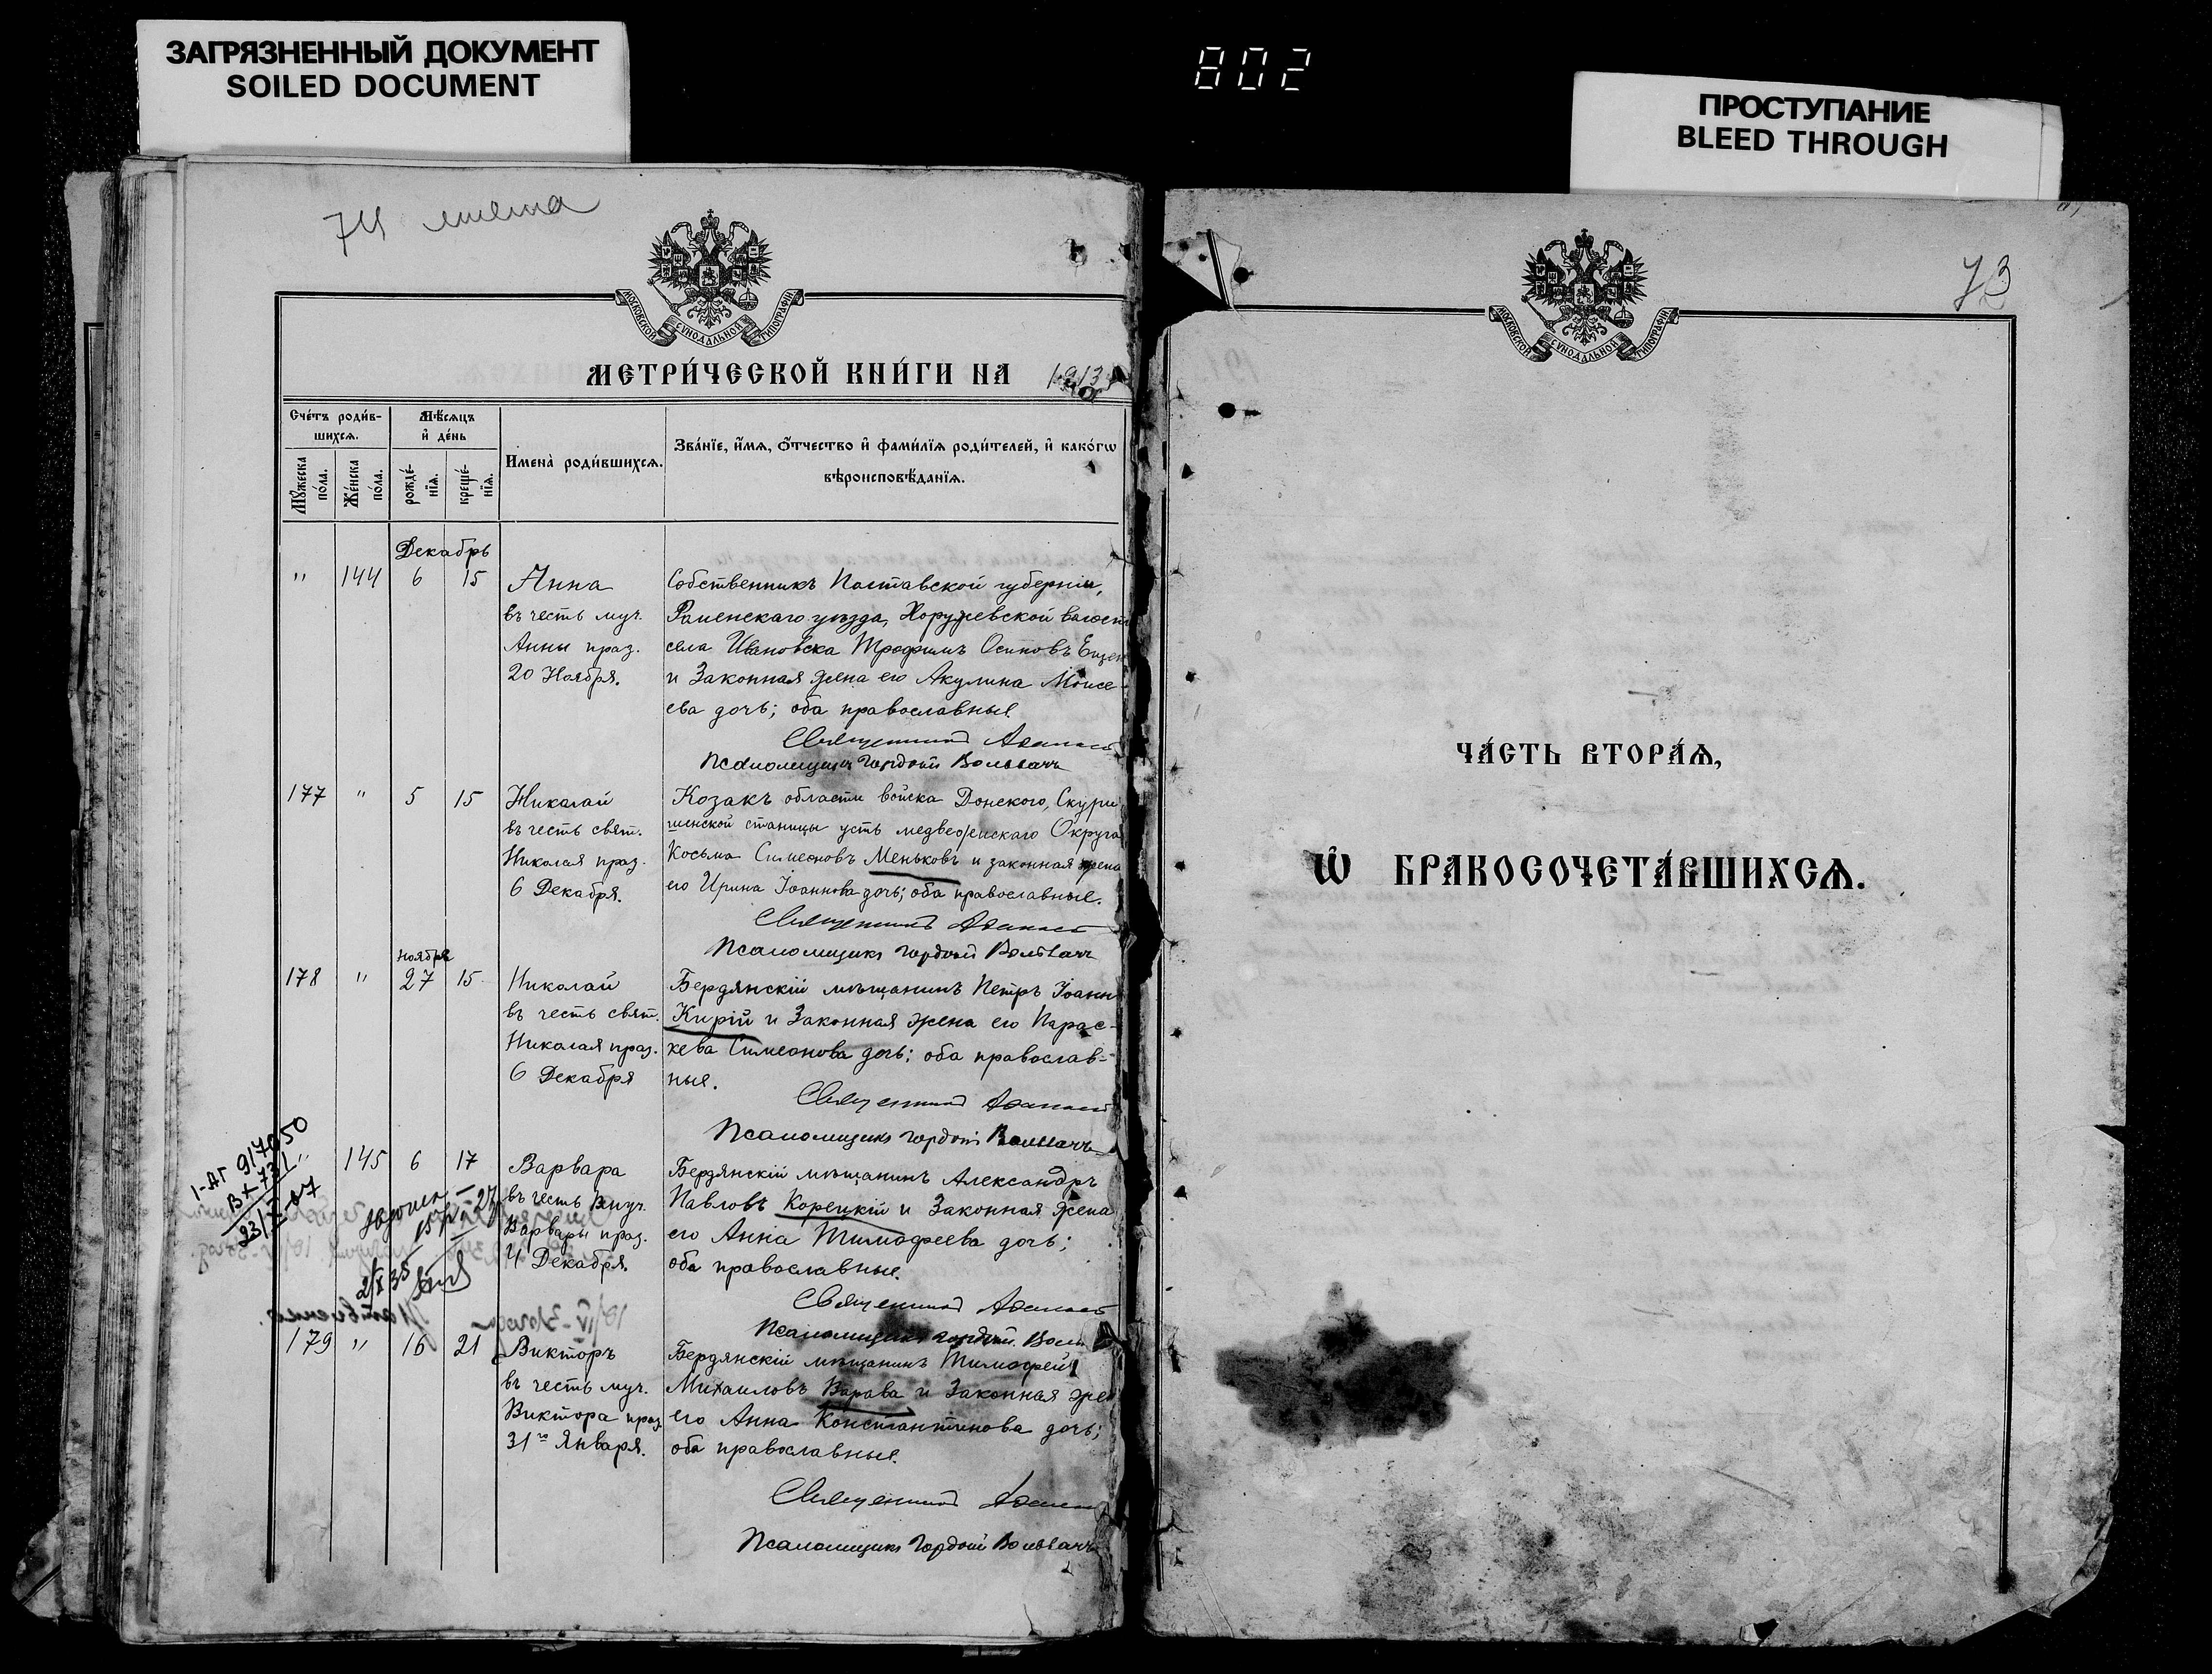 ЗАГРЯЗНЕННЫЙ ДОКУМЕНТ
SOILED DOCUMENT
802
ПРОСТУПАНИЕ
BLEED THROUGH
МОСКОВСКОЙ СѴНОДАЛЬНОЙ ТИПОГРАФІИ
МЕТРИ́ЧЕСКОЙ КНИ́ГИ НА 1913
Сче́тъ роди́в-
шихсѧ.
Мѣ́сѧцъ
и҆ де́нь
Мꙋ́жеска по́ла.
Же́нска по́ла.
рожде́-
нїѧ.
креще́-
нїѧ.
Имена̀ роди́вшихсѧ.
Зва́нїе, и҆́мѧ, ѻ҆́тчество и҆ фами́лїѧ роди́телей, и҆ како́гѡ
вѣроисповѣ́данїѧ.
Декабрь
" 144 6 15 Анна
въ честь муч.
Анны праз.
20 Ноября.
Собственникъ Полтавской губерніи,
Роменскаго уѣзда, Хоружевской
села Ивановска Трофимъ Осиповъ
и Законная жена его Акулина Моисе-
ева дочь; оба православные
Священникъ
Псаломщикъ Гордій
177 " 5 15 Николай
въ честь свят.
Николая праз.
6 Декабря.
Козакъ области войска Донского,
станицы усть медведицкаго Округа
Косьма Симеоновъ Меньковъ и законная жена
его Ирина Іоаннова дочь; оба православные.
Священникъ
Псаломщикъ Гордій
Ноября
178 " 27 15 Николай
въ честь свят.
Николая праз.
6 Декабря
Бердянскій мѣщанинъ Петръ Іоанн
Кирій и Законная жена его Парас-
кева Симеонова дочь; оба православ-
ные.
Священникъ
Псаломщикъ Гордій
" 145 6 17 Варвара
въ честь
Варвары праз.
4 Декабря.
Бердянскій мѣщанинъ Александръ
Павловъ Корецкій и Законная жена
его Анна Тимофеева дочь;
оба православные.
Священникъ
Псаломщикъ Гордій
179 " 16 21 Викторъ
въ честь муч.
Виктора праз.
31го Января.
Бердянскій мѣщанинъ Тимофей
Михаиловъ Варава и Законная
его Анна Константинова дочь;
оба православные.
Священникъ
Псаломщикъ Гордій
73
МОСКОВСКОЙ СѴНОДАЛЬНОЙ ТИПОГРАФІИ
ЧА́СТЬ ВТОРА́Ѧ,
Ѡ҆ БРАКОСОЧЕТА́ВШИХСѦ.